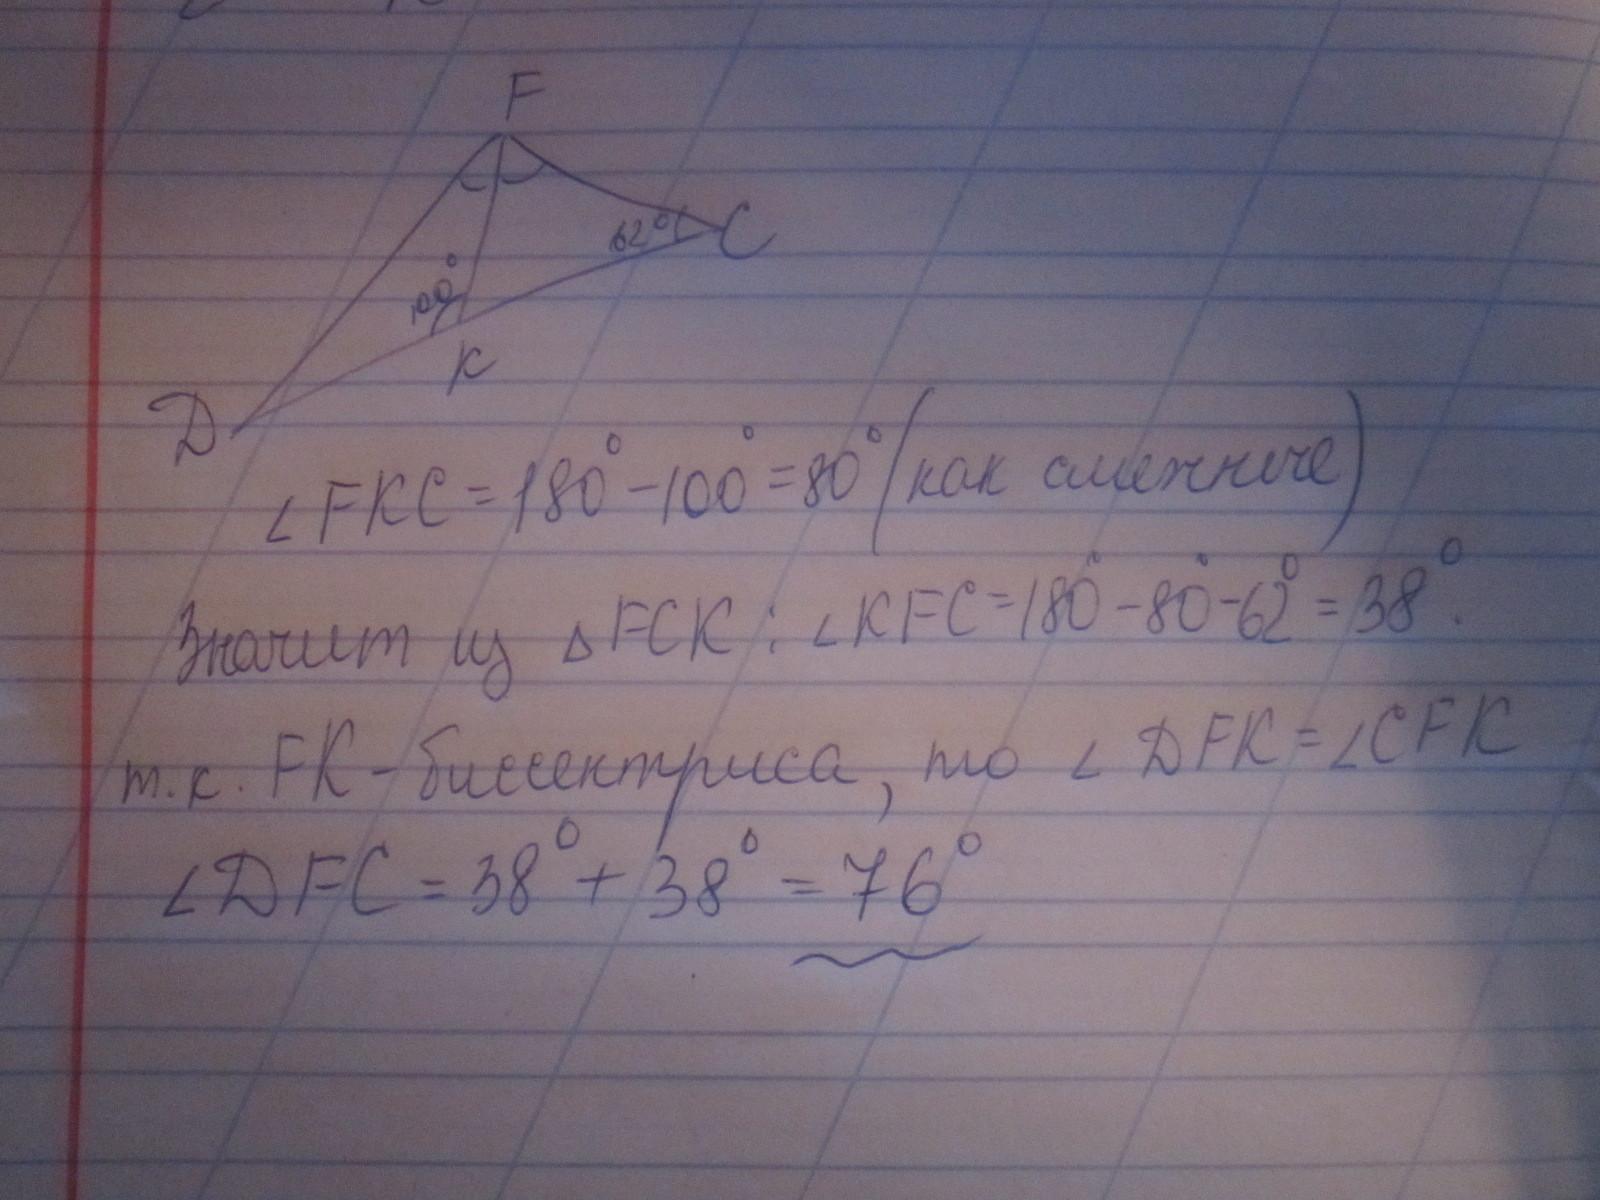 F
62°
C
100°
K
D
∠FKC = 180° - 100° = 80° (как смежные)
Значит из △FCK: ∠KFC = 180° - 80° - 62° = 38°.
т.к. FK - биссектриса, то ∠DFK = ∠CFK
∠DFC = 38° + 38° = 76°